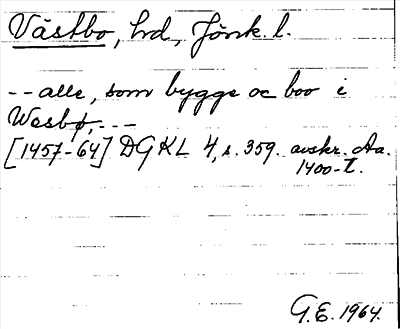 Västbo, hd, Jönk. l.
-- alle, som bygge oc boo i
Wesbø, ---
[1457-64] DGKL 4, s. 359. avskr. Aa.
1400-t.
G.E. 1964.